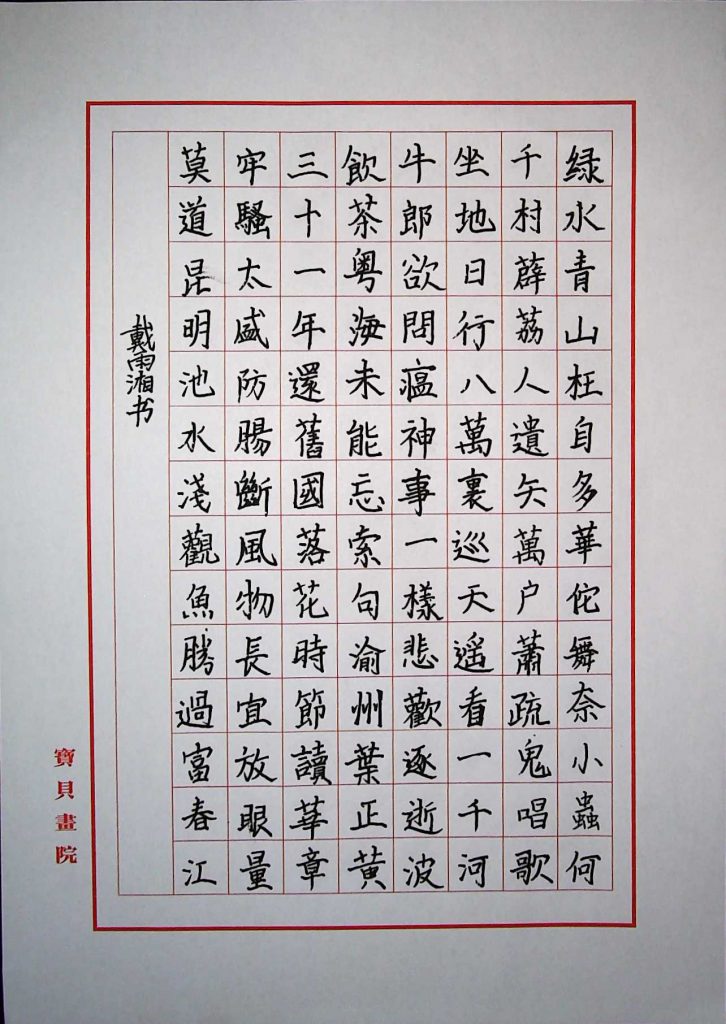 绿水青山枉自多華佗舞奈小蟲何
千村薜荔人遺矢萬户蕭疏鬼唱歌
坐地日行八萬裏巡天遥看一千河
牛郎欲問瘟神事一樣悲歡逐逝波
飲茶粤海未能忘索句渝州葉正黄
三十一年還舊國落花時節讀華章
牢騷太盛防腸斷風物長宜放眼量
莫道昆明池水淺觀魚勝過富春江
戴雨湘书
寶貝畫院